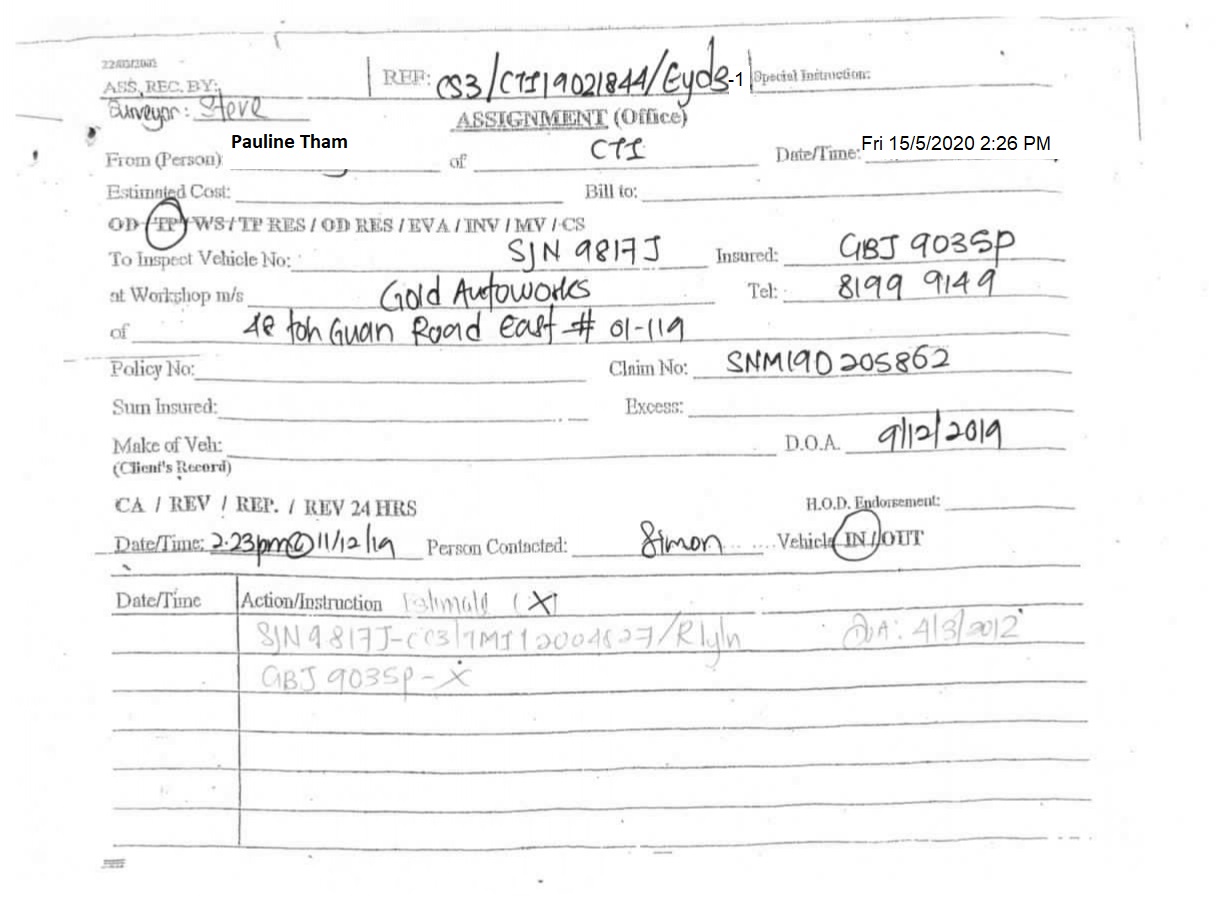 22/03/2003
ASS. REC. BY: REF: CS3/CTI19021844/Eyds-1 Special Instruction:
Surveyor: Steve
ASSIGNMENT (Office)
From (Person) Pauline Tham of CTI Date/Time: Fri 15/5/2020 2:26 PM
Estimated Cost: Bill to:
OD / TP / WS / TP RES / OD RES / EVA / INV / MV / CS
To Inspect Vehicle No: SJN 9817J Insured: GBJ 9035P
at Workshop m/s Gold Autoworks Tel: 8199 9149
of 48 Toh Guan Road East # 01-119
Policy No: Claim No: SNM190205862
Sum Insured: Excess:
Make of Veh: D.O.A. 9/12/2019
(Client's Record)
CA / REV / REP. / REV 24 HRS H.O.D. Endorsement:
Date/Time: 2.23pm@11/12/19 Person Contacted: Simon Vehicle IN / OUT
Date/Time Action/Instruction Estimate (X)
SJN9817J-CC3/TMI12004827/R1yn DOA: 4/3/2012
GBJ 9035P-X